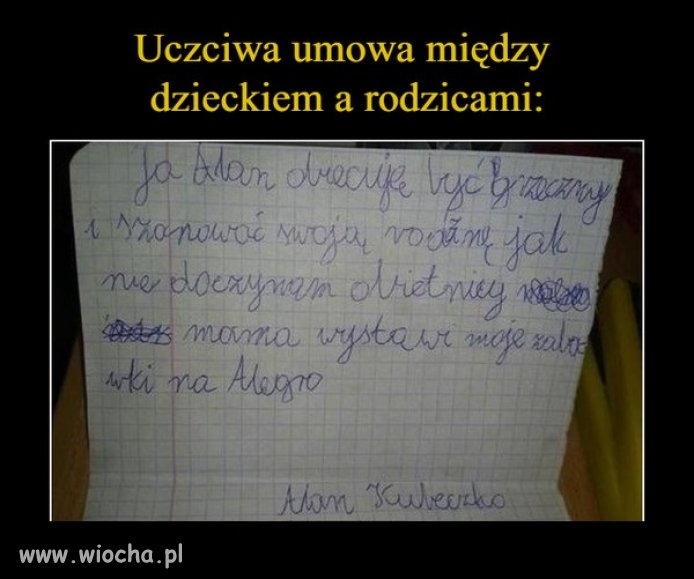 Uczciwa umowa między
dzieckiem a rodzicami:
Ja Alan obiecuję być grzeczny
i szanować swoją rodźnę jak
nie doczynam obietnicy
mama wystawi moje zaba
wki na Alegro
Alan Kubeczko
www.wiocha.pl